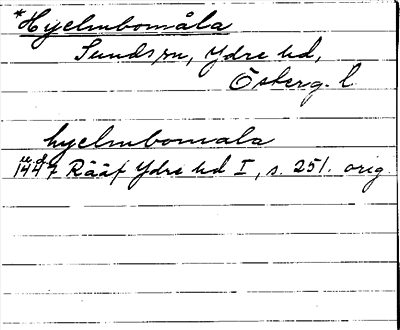 *Hjelmbomåla
Sunds sn, Ydre hd,
Österg. l.
hjelmbomala
1447 Rääf Ydre hd I, s. 251. orig.